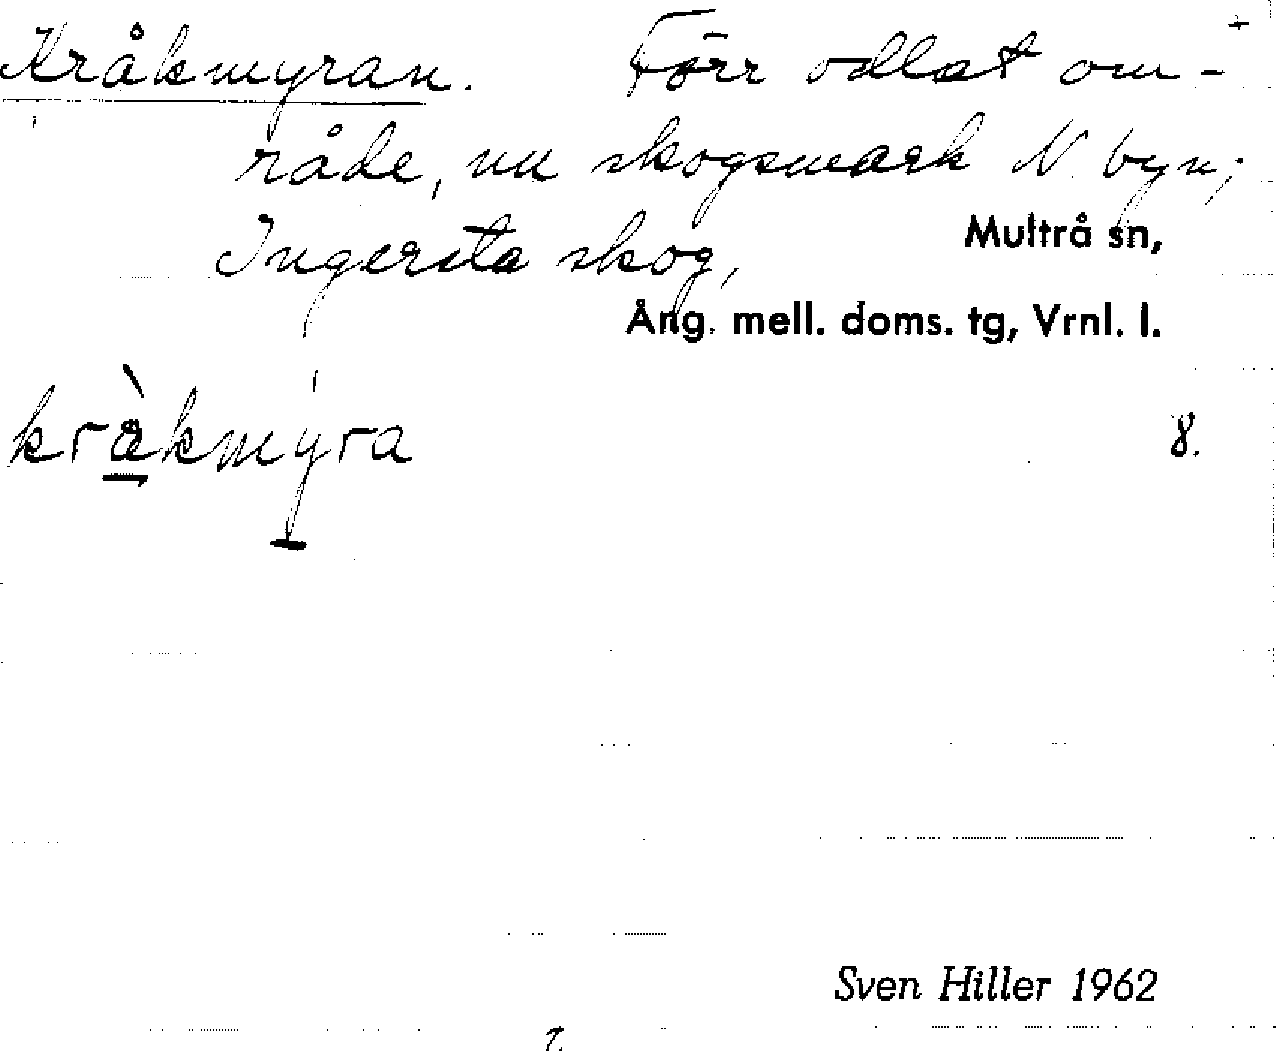 Kråkmyran. Förr odlat om-
råde, nu skogsmark N. byn;
Ingersta skog,
Multrå sn,
Ång. mell. doms. tg, Vrnl. l.
kràkmyra
8.
Sven Hiller 1962